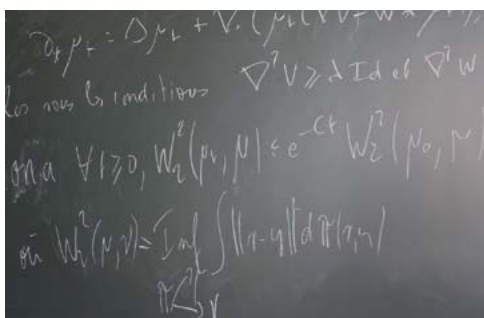 ∂ₜ μₜ = Δ μₜ + ∇·(μₜ(∇V + ∇W * μₜ
sous les conditions ∇²V ≥ λ Id et ∇²W
on a ∀t≥0, W₂²(μₜ, μ) ≤ e^{-Ct} W₂²(μ₀, μ
où W₂²(μ,ν) = Inf ∫ ||x-y||² dπ(x,y)
π
μ
ν